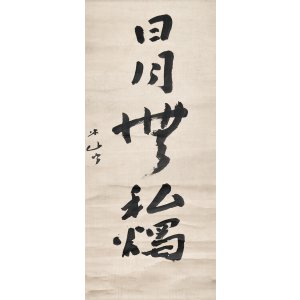 日月無私燭